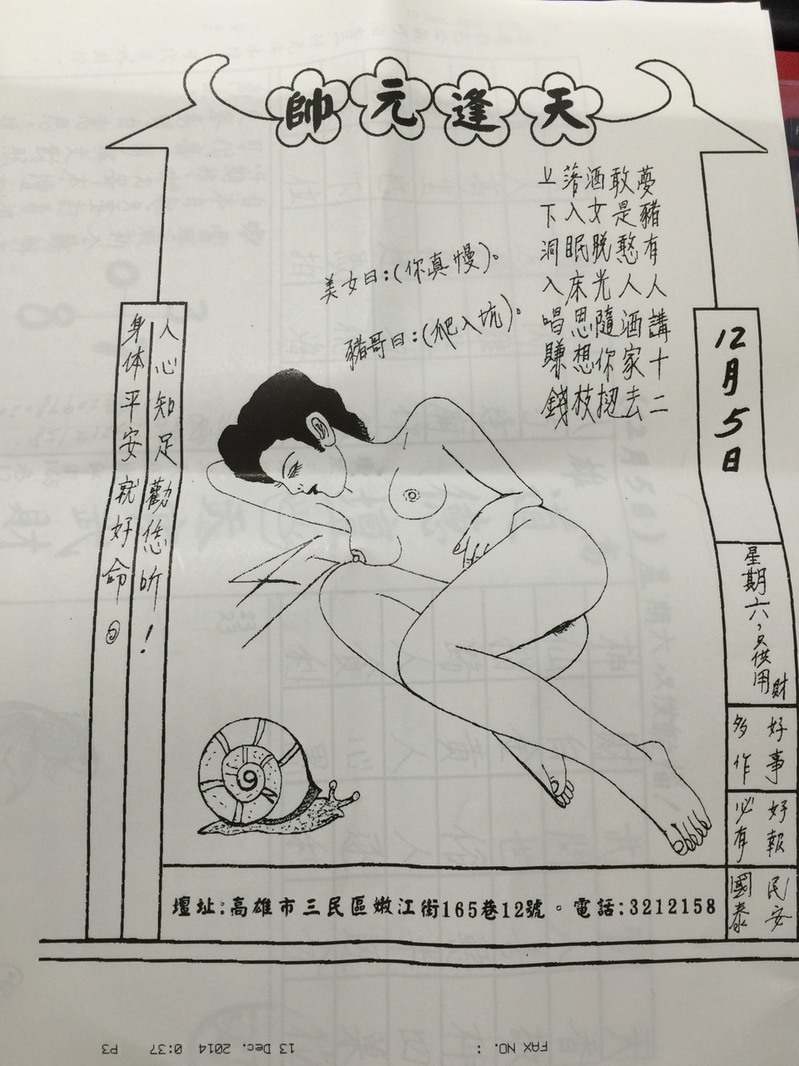 天逢元帥
夢豬有人講十二
敢是憨人酒家去
酒女脱光隨你
落入眠床思想枝
上下洞入唱賺錢
美女曰：(你真慢)。
豬哥曰：(爬入坑)。
12月5日
星期六，只供用財
好事
多作
好報
必有
民安
國泰
人心知足勸您听！
身体平安就好命◎
壇址:高雄市三民區嫩江街165巷12號。電話:3212158
FAX NO. : 13 Dec. 2014 0:37 P3